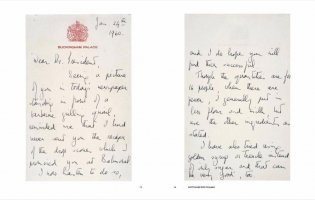 Jan 24th
1960.
BUCKINGHAM PALACE
Dear Mr. President,
Seeing a picture
of you in today's newspaper
standing in front of a
barbecue grilling quail,
reminded me that I had
never sent you the recipe
of the drop scones which I
promised you at Balmoral.
I now hasten to do so,
and I do hope you will
find them successful.
Though the quantities are for
16 people, when there are
fewer, I generally put in
less flour and milk, but
use the other ingredients as
stated.
I have also tried using
golden syrup or treacle instead
of only sugar and that can
be very good, too.